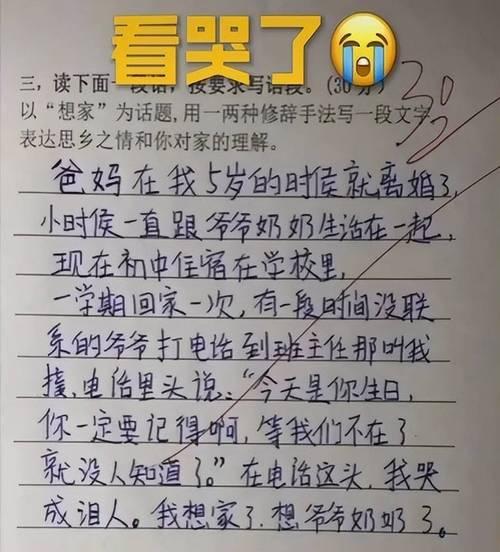 看哭了
三，读下面一段话，按要求写话段。（30分）
30
以“想家”为话题,用一两种修辞手法写一段文字,
表达思乡之情和你对家的理解。
爸妈在我5岁的时候就离婚了,
小时候一直跟爷爷奶奶生活在一起,
现在初中住宿在学校里,
一学期回家一次,有一段时间没联
系的爷爷打电话到班主任那叫我
接,电话里头说:“今天是你生日,
你一定要记得啊,等我们不在了
就没人知道了。”在电话这头,我哭
成泪人。我想家了,想爷爷奶奶了。